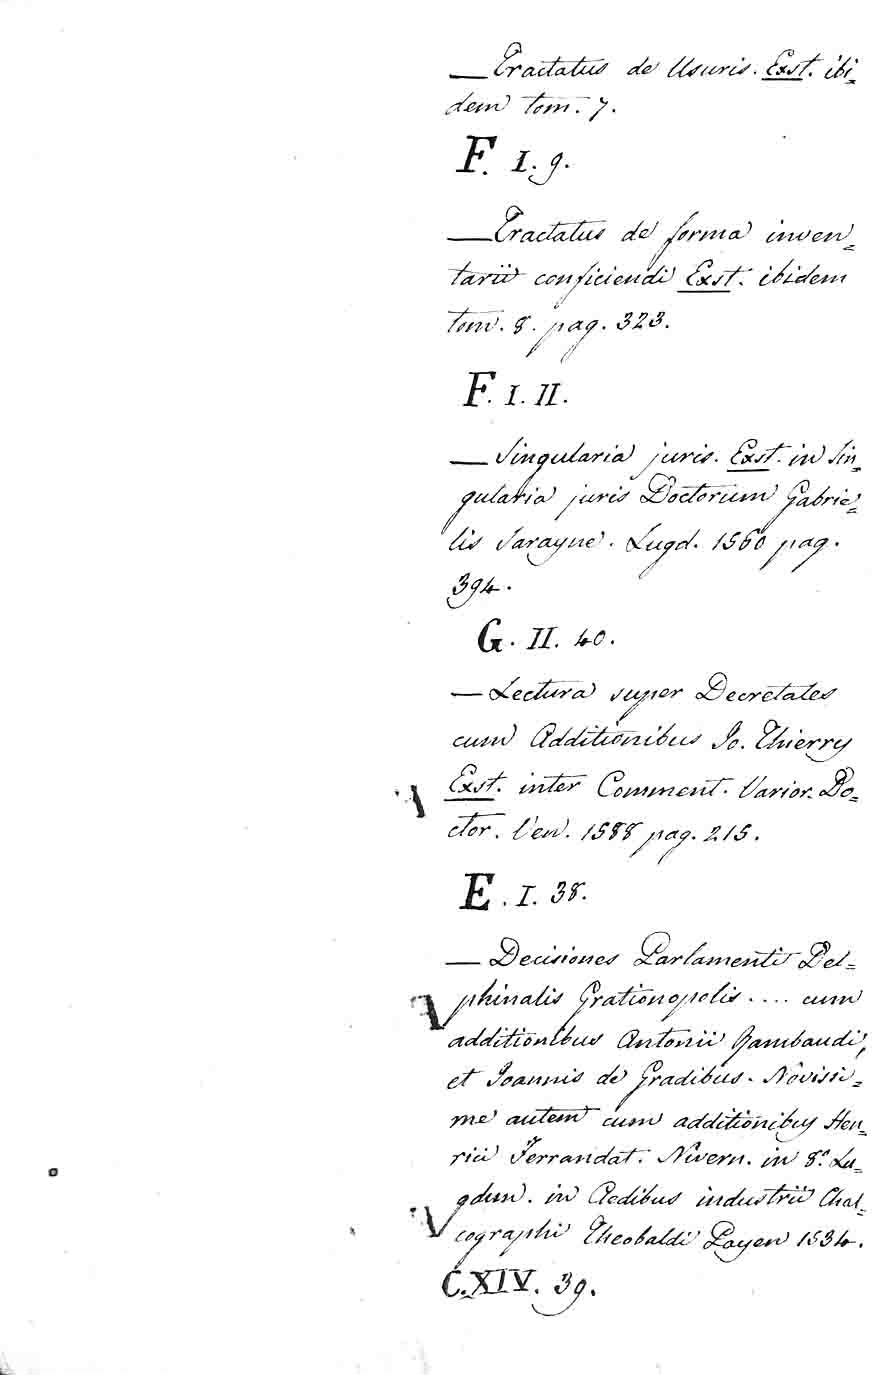 — Tractatus de Usuris. Exst. ibi=
dem tom. 7.
F. I. 9.
— Tractatus de forma inven=
tarii conficiendi Exst. ibidem
tom. 8. pag. 323.
F. I. II.
— Singularia juris. Exst. in Sin=
gularia juris Doctorum Gabrie=
lis Sarayne. Lugd. 1560 pag.
394.
G. II. 40.
— Lectura super Decretales
cum Additionibus Jo. Thierry
Exst. inter Comment. Varior. Do=
ctor. Ven. 1588 pag. 215.
E. I. 38.
— Decisiones Parlamenti Del=
phinalis Grationopolis .... cum
additionibus Antonii Rambaudi,
et Joannis de Gradibus. Novissi=
me autem cum additionibus Hen=
rici Ferrandat. Nivern. in 8.° Lu=
gdun. in Aedibus industrii Chal=
cographi Theobaldi Payen 1534.
C. XIV. 39.